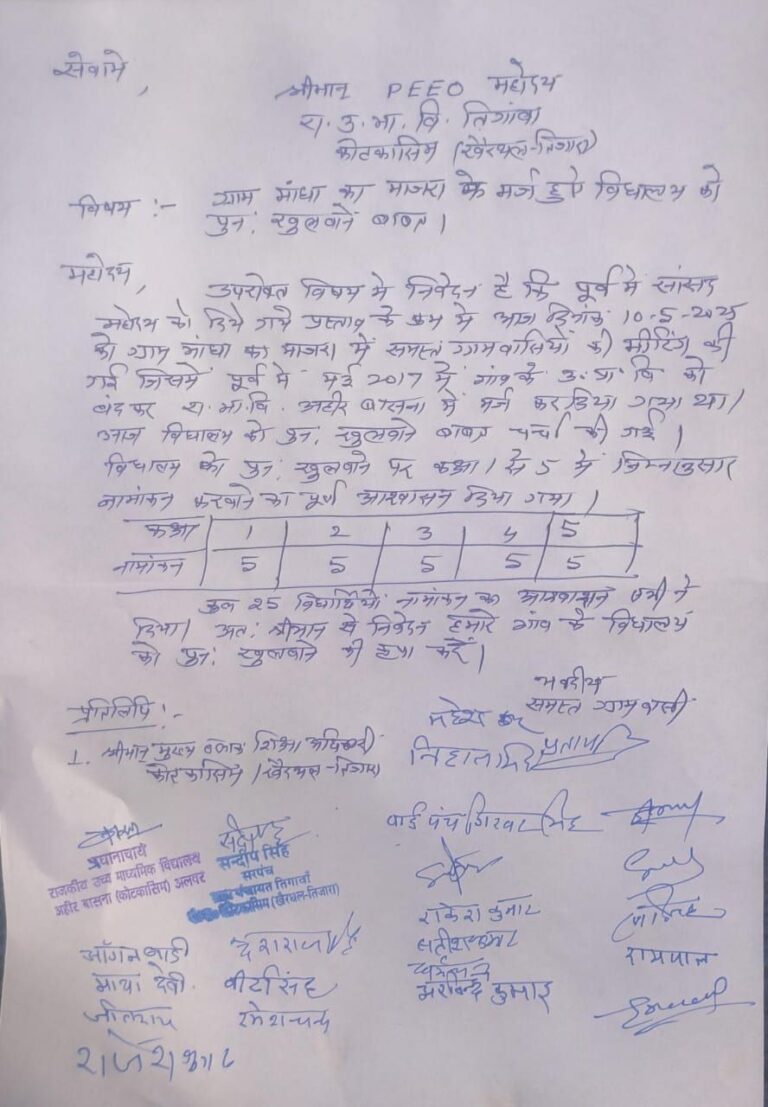 सेवामे,
श्रीमान् PEEO महोदय
रा. उ. मा. वि. तिगांवा
कोटकासिम (खैरथल-तिजारा)
विषय :- ग्राम मांधा का माजरा के मर्ज हुए विधालय को
पुन: खुलवाने बाबत।
महोदय,
उपरोक्त विषय मे निवेदन है कि पूर्व मे सांसद
महोदय को दिये गये प्रस्ताव के क्रम मे आज दिनांक 10-5-2025
को ग्राम मांधा का माजरा में समस्त ग्रामवासियों की मीटिंग की
गई जिसमें पूर्व मे मई 2017 में गांव के उ. प्रा. वि को
बंद कर रा. मा. वि. अहीर बासना में मर्ज कर दिया गया था।
आज विधालय को पुन: खुलवाने बाबत चर्चा की गई।
विधालय को पुन: खुलवाने पर कक्षा 1 से 5 में निम्नानुसार
नामांकन करवाने का पूर्ण आश्वासन दिया गया।
कक्षा 1 2 3 4 5
नामांकन 5 5 5 5 5
कुल 25 विधार्थियों नामांकन का आश्वासन सभी ने
दिया। अत: श्रीमान से निवेदन हमारे गांव के विधालय
को पुन: खुलवाने की कृपा करें।
भवदीय
समस्त ग्रामवासी
प्रतिलिपि :-
1. श्रीमान मुख्य ब्लाक शिक्षा अधिकारी
कोटकासिम (खैरथल-तिजारा)
महेश
निहाल सिंह प्रताप
वार्ड पंच गिरवर सिंह
प्रधानाचार्य
राजकीय उच्च माध्यमिक विद्यालय
अहीर बासना (कोटकासिम) अलवर
सन्दीप सिंह
सरपंच
ग्राम पंचायत तिगावां
कोटकासिम (खैरथल-तिजारा)
राकेश कुमार
सतीश कुमार
आँगनबाडी देशराज
रामपाल
माया देवी. वीर सिंह
अरविन्द कुमार
जीतराम रमेशचन्द
राजेश कुमार